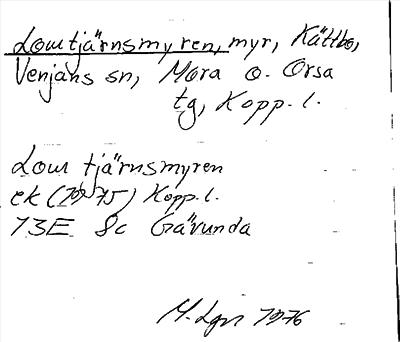 Lomtjärnsmyren, myr, Kättbo,
Venjans sn, Mora o. Orsa
tg, Kopp. l.
Lomtjärnsmyren
ek (1975) Kopp. l.
13E 8c Gävunda
M. Lgn 1976